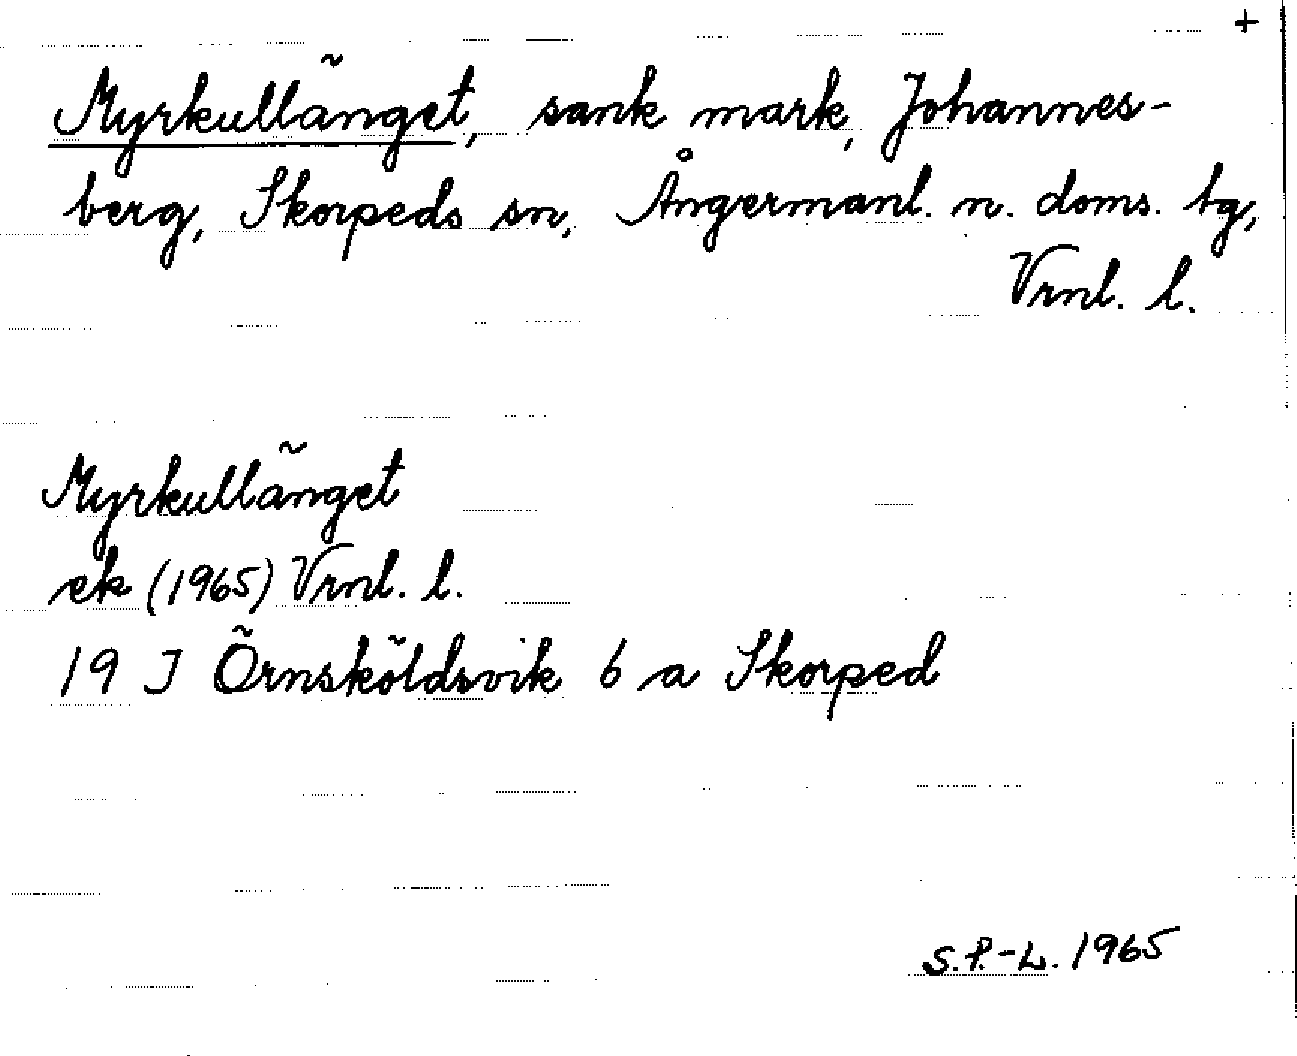 +
Myrkullänget, sank mark, Johannes-
berg, Skorpeds sn, Ångermanl. n. doms. tg,
Vrnl. l.
Myrkullänget
ek (1965) Vrnl. l.
19 J Örnsköldsvik 6 a Skorped
S.P.-L. 1965